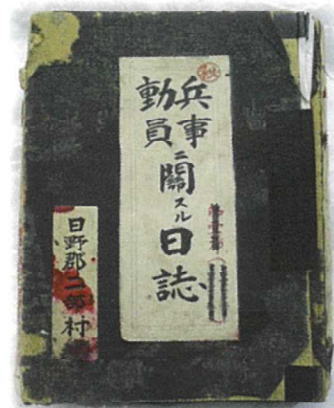 秘
兵事
動員
ニ關スル日誌
日野郡二部村